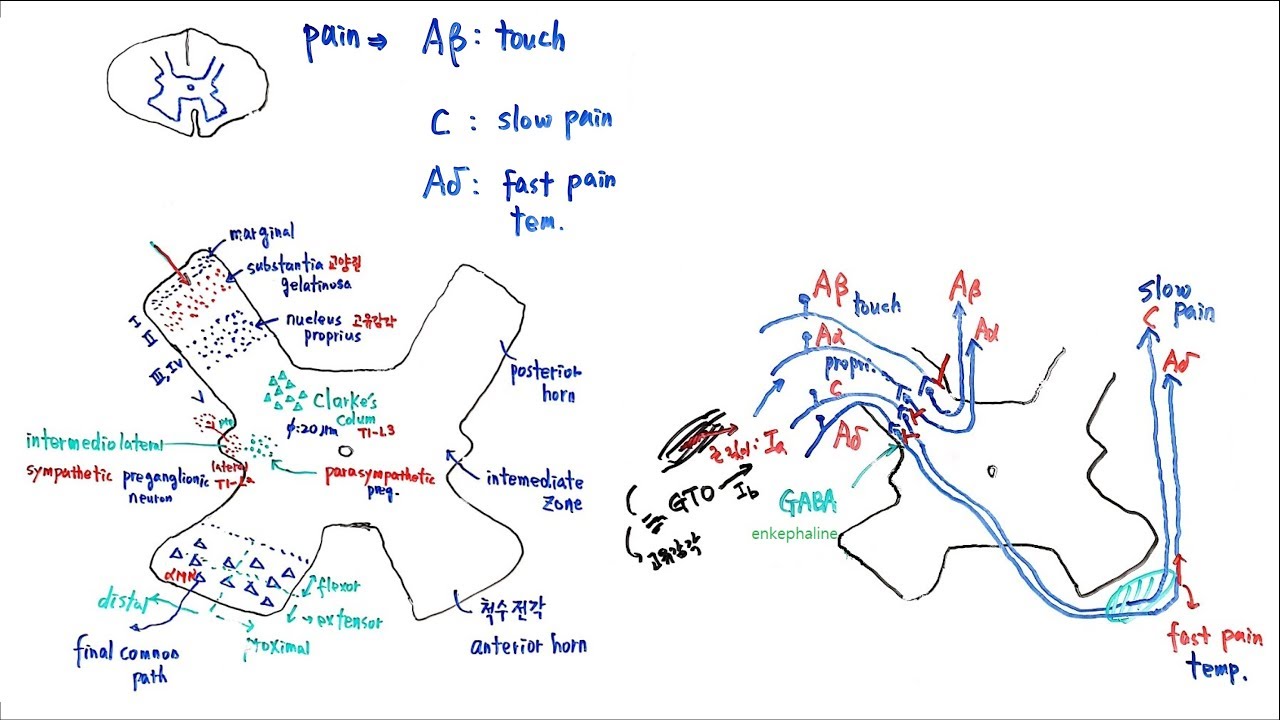 pain ⇒ Aβ: touch
C : slow pain
Aδ: fast pain
tem.
marginal
substantia 교양질
gelatinosa
nucleus 고유감각
proprius
I
II
III, IV
V
Clarke's
colum
φ:20μm T1-L3
intermediolateral
sympathetic preganglionic
neuron
(lateral)
parasympathetic
preg.
posterior
horn
intemediate
zone
αMN
flexor
extensor
distal
proximal
final common
path
척수전각
anterior horn
Aβ
touch
Aα
propri.
C
Aδ
Ia
GTO Ib
고유감각
GABA
enkephaline
Aβ
Aα
slow
pain
C
Aδ
fast pain
temp.